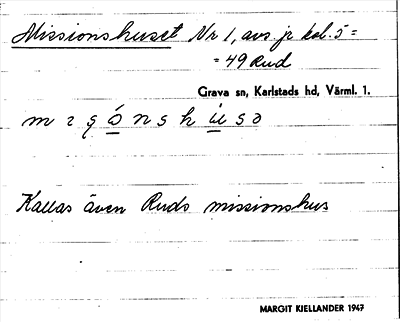 Missionshuset Nr 1, avs. jr kol. 5 =
= 49 Rud
Grava sn, Karlstads hd, Värml. 1.
Kallas även Ruds missionshus
MARGIT KJELLANDER 1947